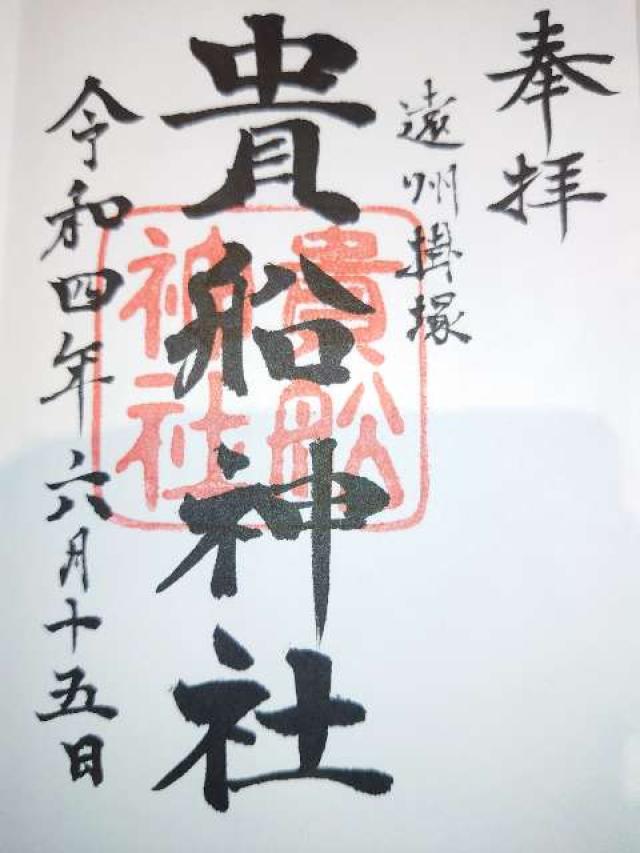 奉拝
遠州掛塚
貴船神社
貴舩神社
令和四年六月十五日